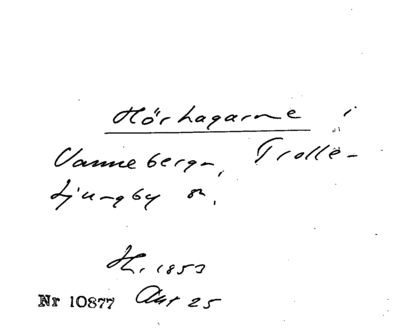 Hörhagarne i
Vanneberga, Trolle-
Ljungby sn.
H. 1853
Nr 10877 Akt 25